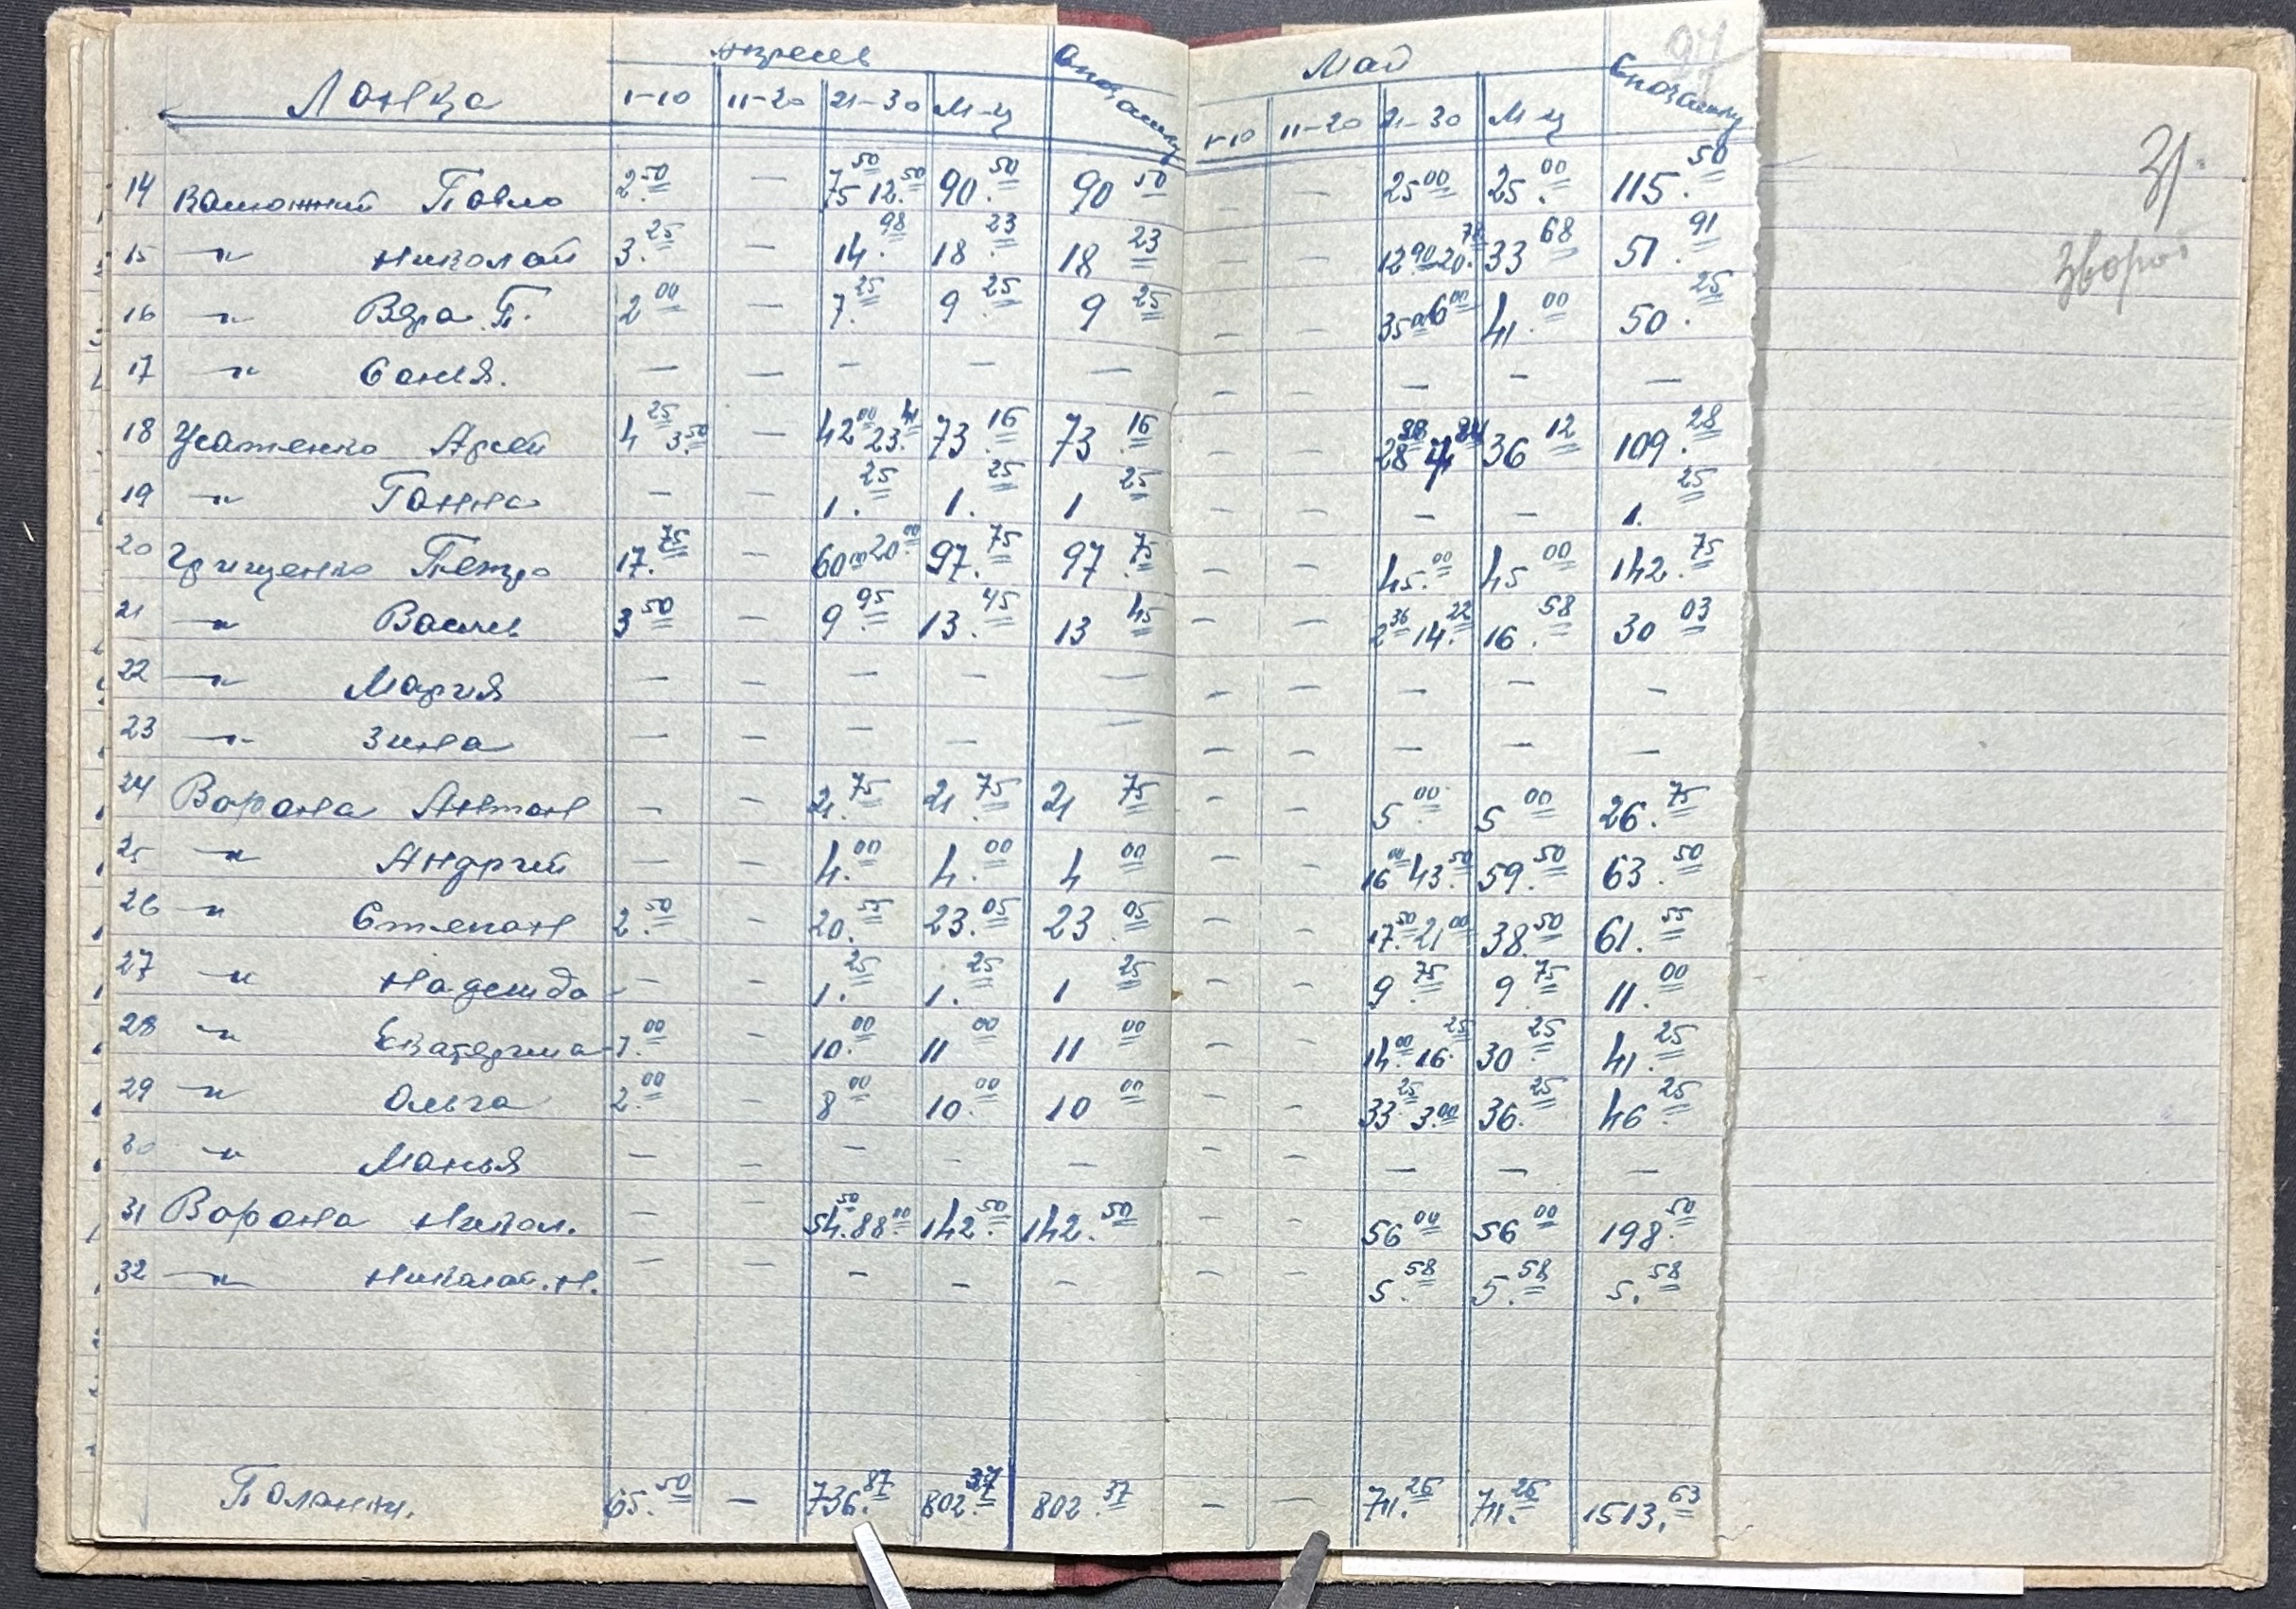 Ланка Апрель Спочатку Май Спочатку 97
1-10 11-20 21-30 М-ц 1-10 11-20 21-30 М-ц
31.
зворот
14 Калюжний Павло 2.50 — 75.50 12.50 90.50 90.50 — — 25.00 25.00 115.50
15 -"- Николай 3.25 — 14.98 18.23 18.23 — — 12.90 20.78 33.68 51.91
16 -"- Вера П. 2.00 — 7.25 9.25 9.25 — — 35.00 6.00 41.00 50.25
17 -"- Соня. — — — — — — — — — —
18 Усатенко Арсей 4.25 3.50 — 42.00 23.41 73.16 73.16 — — 28.88 7.24 36.12 109.28
19 -"- Ганна — — 1.25 1.25 1.25 — — — — 1.25
20 Грищенко Петро 17.75 — 60.00 20.00 97.75 97.75 — — 45.00 45.00 142.75
21 -"- Василь 3.50 — 9.95 13.45 13.45 — — 2.36 14.22 16.58 30.03
22 -"- Мария — — — — — — — — — —
23 -"- Зина — — — — — — — — — —
24 Ворона Антон — — 21.75 21.75 21.75 — — 5.00 5.00 26.75
25 -"- Андрей — — 4.00 4.00 4.00 — — 16.00 43.50 59.50 63.50
26 -"- Степан 2.50 — 20.55 23.05 23.05 — — 17.50 21.00 38.50 61.55
27 -"- Надежда — — 1.25 1.25 1.25 — — 9.75 9.75 11.00
28 -"- Екатерина 1.00 — 10.00 11.00 11.00 — — 14.00 16.25 30.25 41.25
29 -"- Ольга 2.00 — 8.00 10.00 10.00 — — 33.25 3.00 36.25 46.25
30 -"- Манья — — — — — — — — — —
31 Ворона Никол. — — 54.50 88.00 142.50 142.50 — — 56.00 56.00 198.50
32 -"- Николай.Н. — — — — — — — 5.58 5.58 5.58
По ланки. 65.50 — 736.87 802.37 802.37 — — 711.26 711.26 1513.63